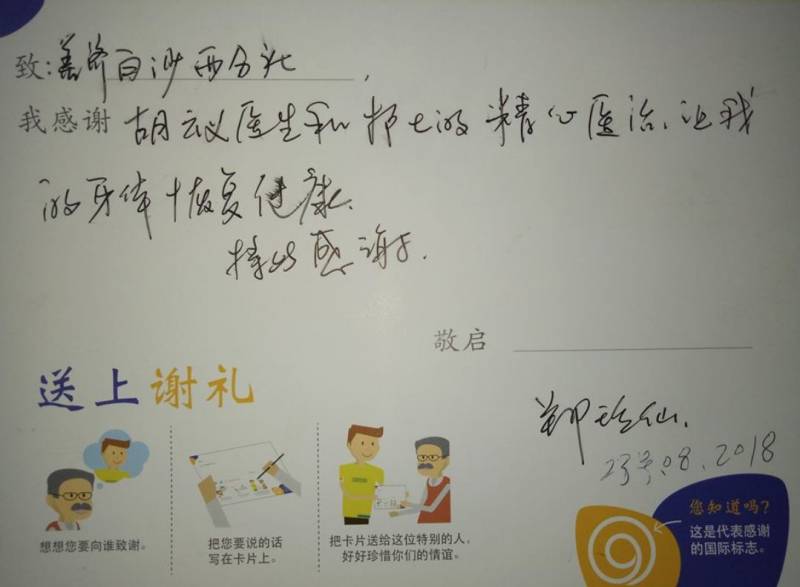 致:美济白沙西分社,
我感谢 胡云议医生和护士的精心医治.让我
的牙体恢复健康.
特此感谢.
敬启
郑珍仙.
23号.08.2018
送上谢礼
想想您要向谁致谢。
把您要说的话
写在卡片上。
把卡片送给这位特别的人,
好好珍惜你们的情谊。
您知道吗?
这是代表感谢
的国际标志。